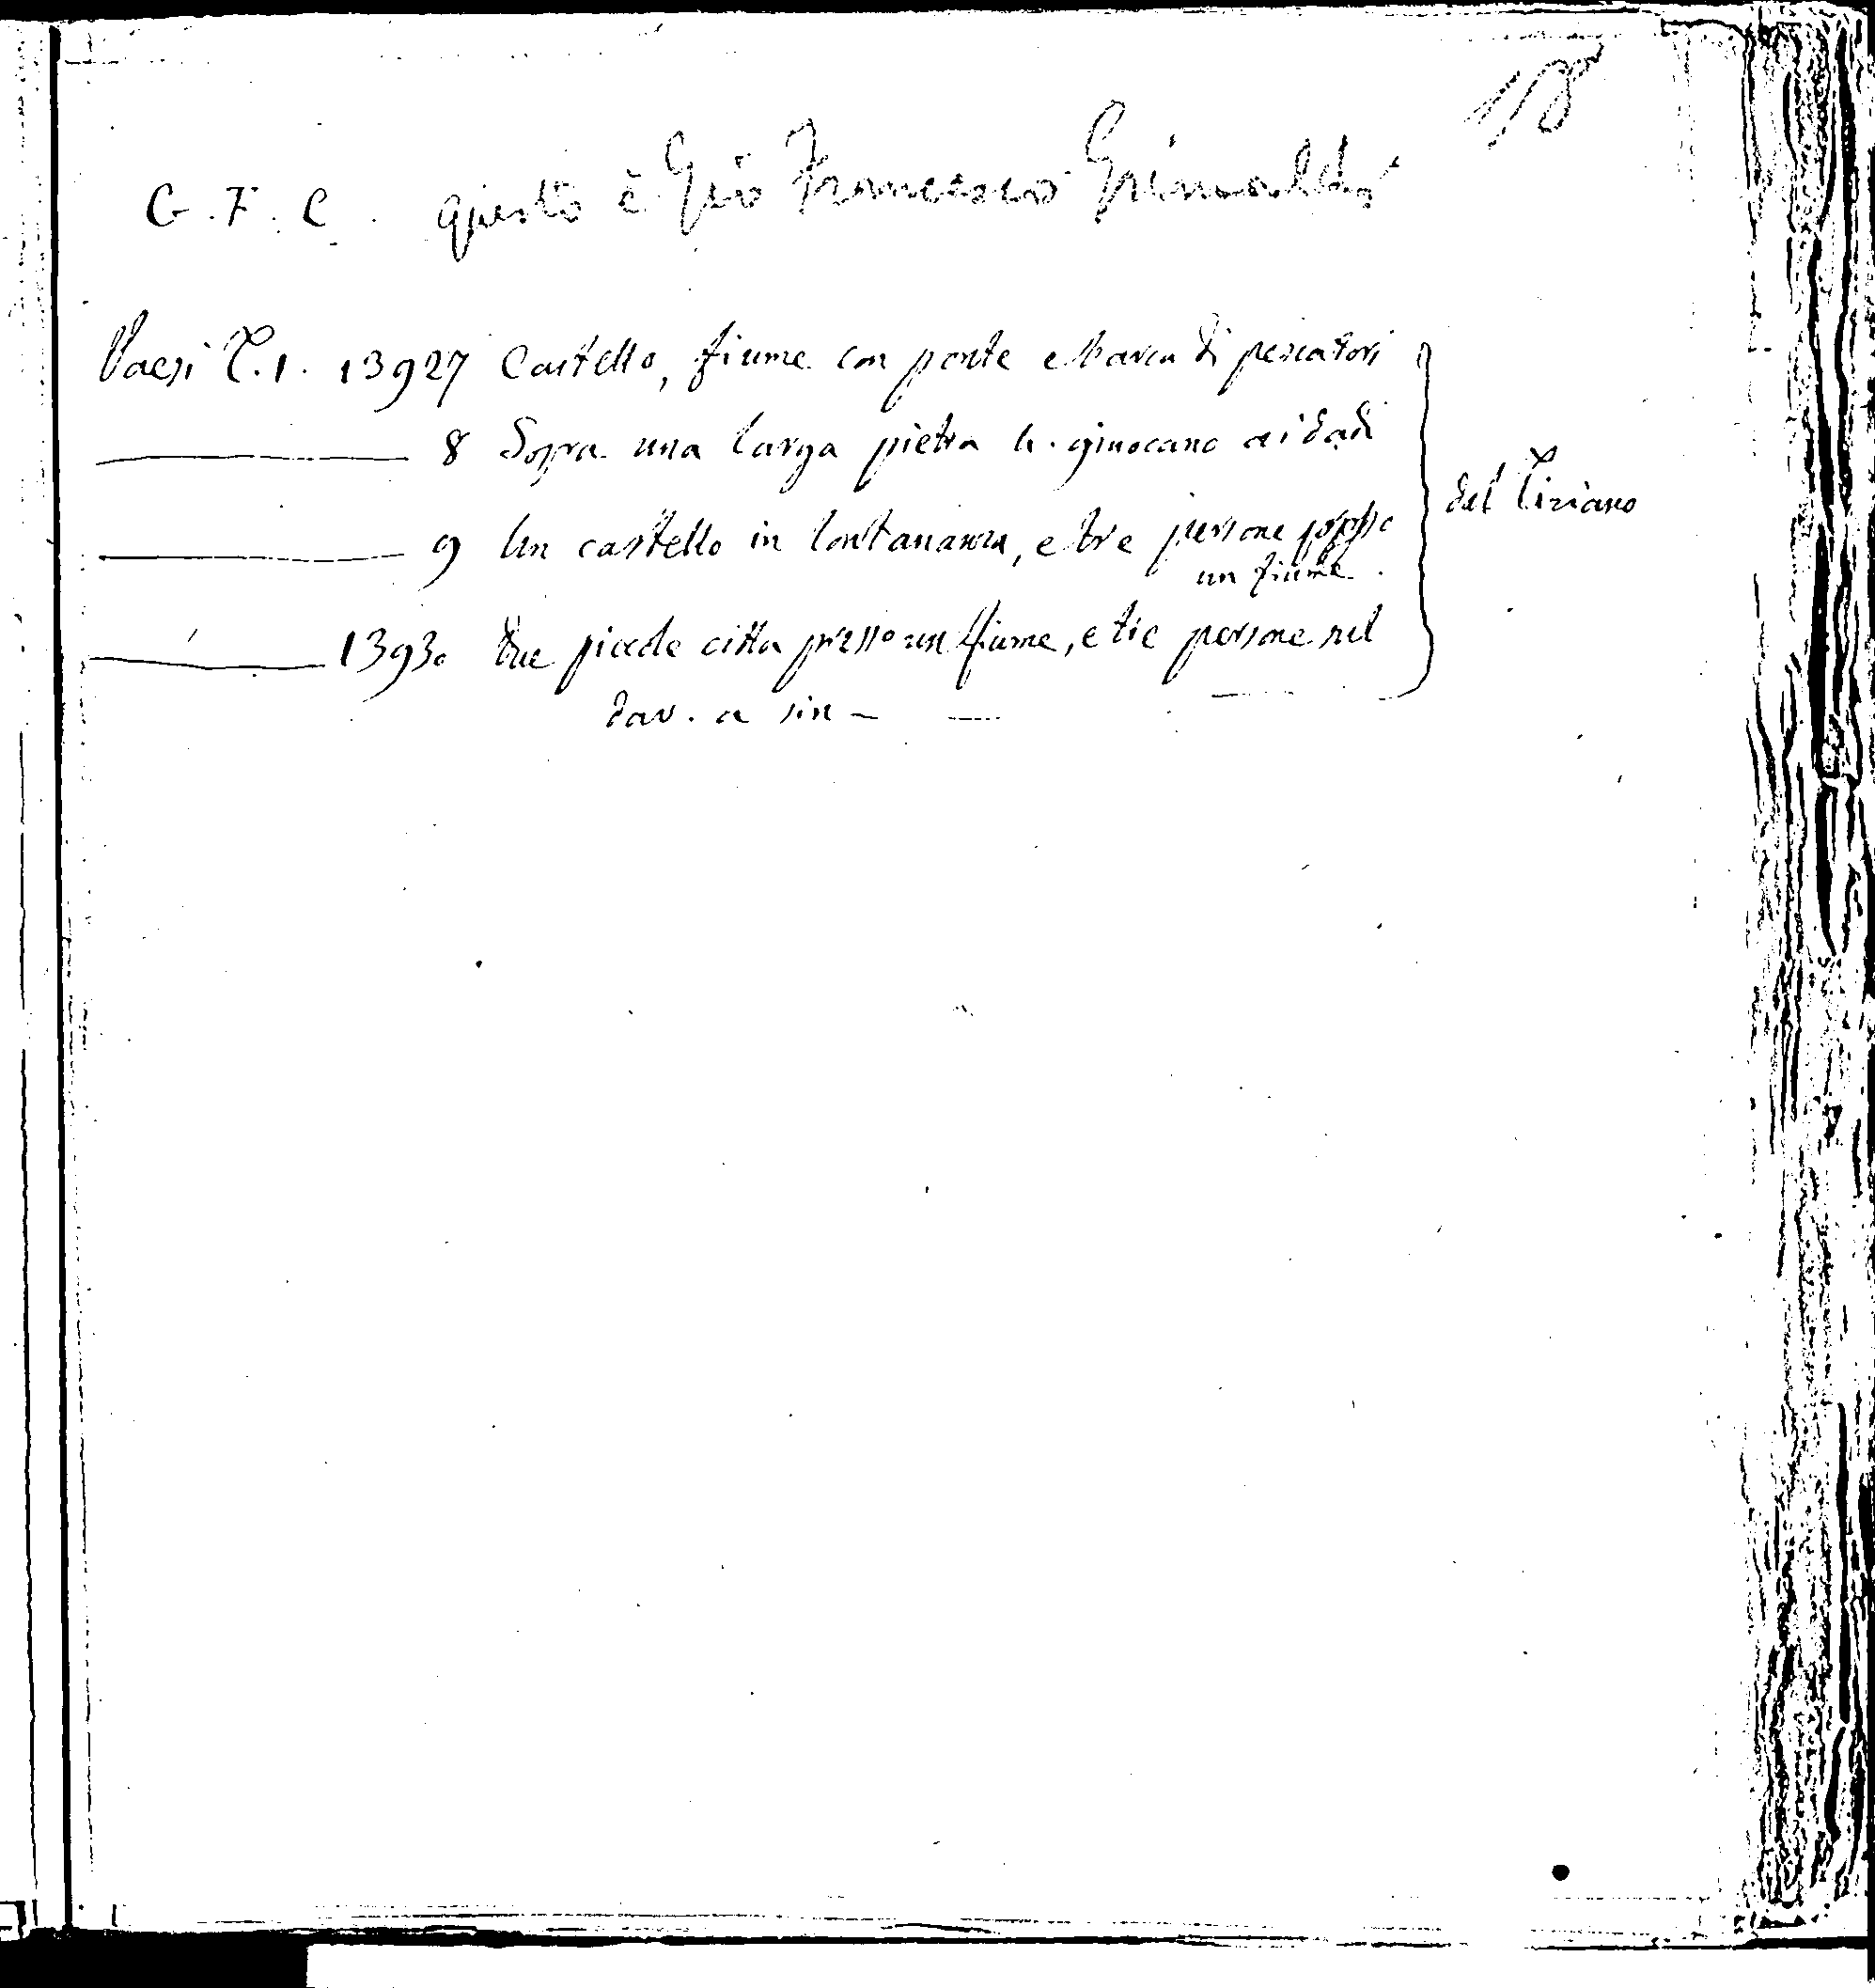 118
G. F. C. questo è Gio Francesco Grimaldi
Paesi T. 1. 13927 Castello, fiume con ponte e barca di pescatori
8 Sopra una larga pietra 4. giuocano ai dadi
9 Un castello in lontananza, e tre persone presso
un fiume.
del Tiziano
13930 Due piccole citta presso un fiume, e tre persone nel
dav. a sin -